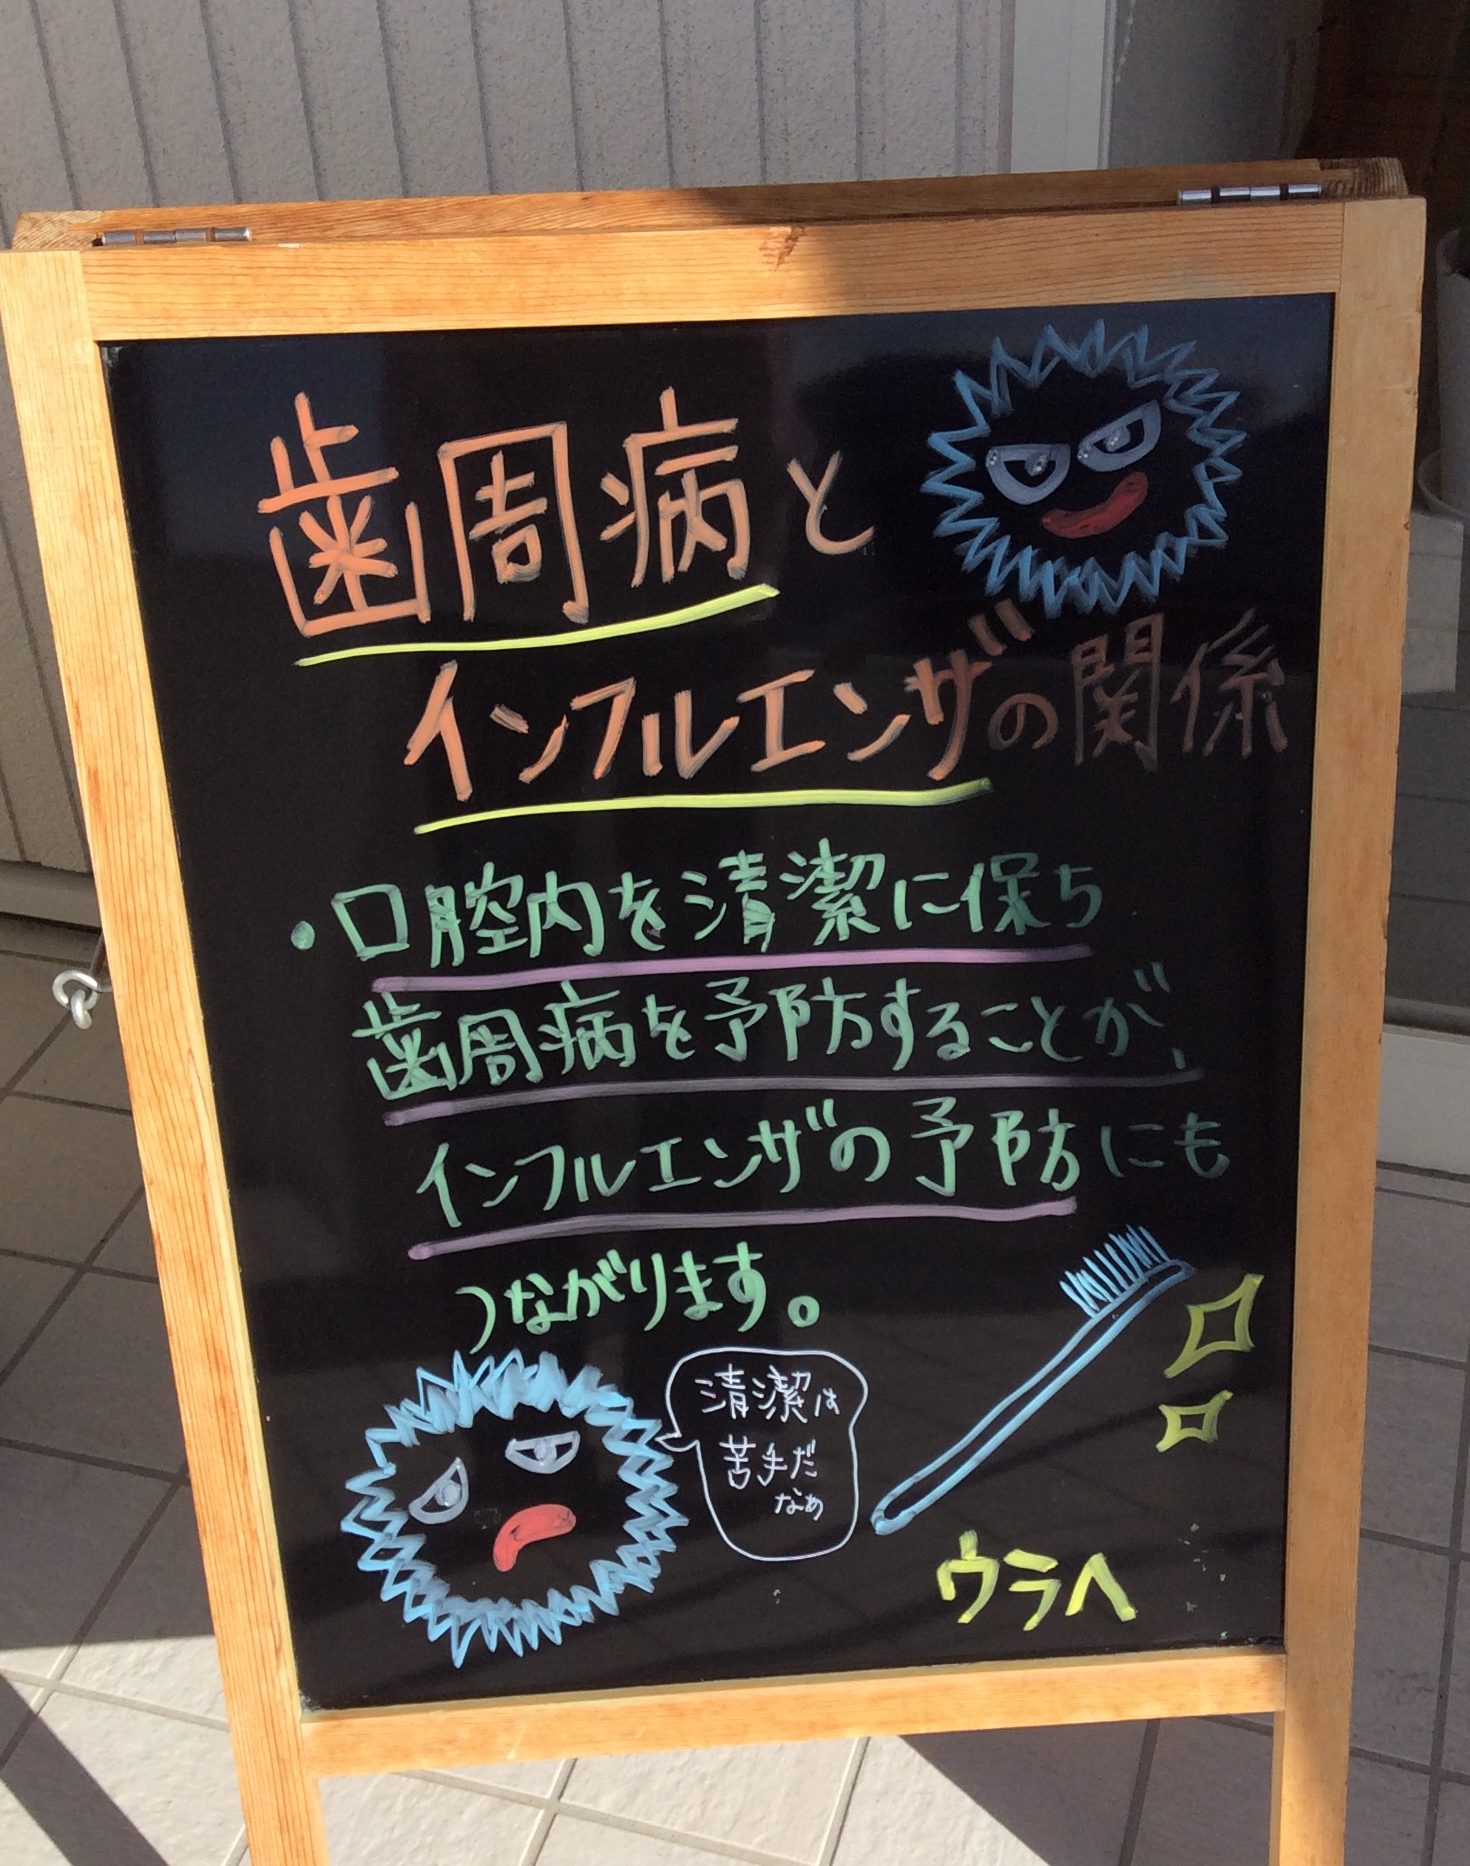 歯周病と
インフルエンザの関係
・口腔内を清潔に保ち
歯周病を予防することが、
インフルエンザの予防にも
つながります。
清潔は
苦手だ
なぁ
ウラへ